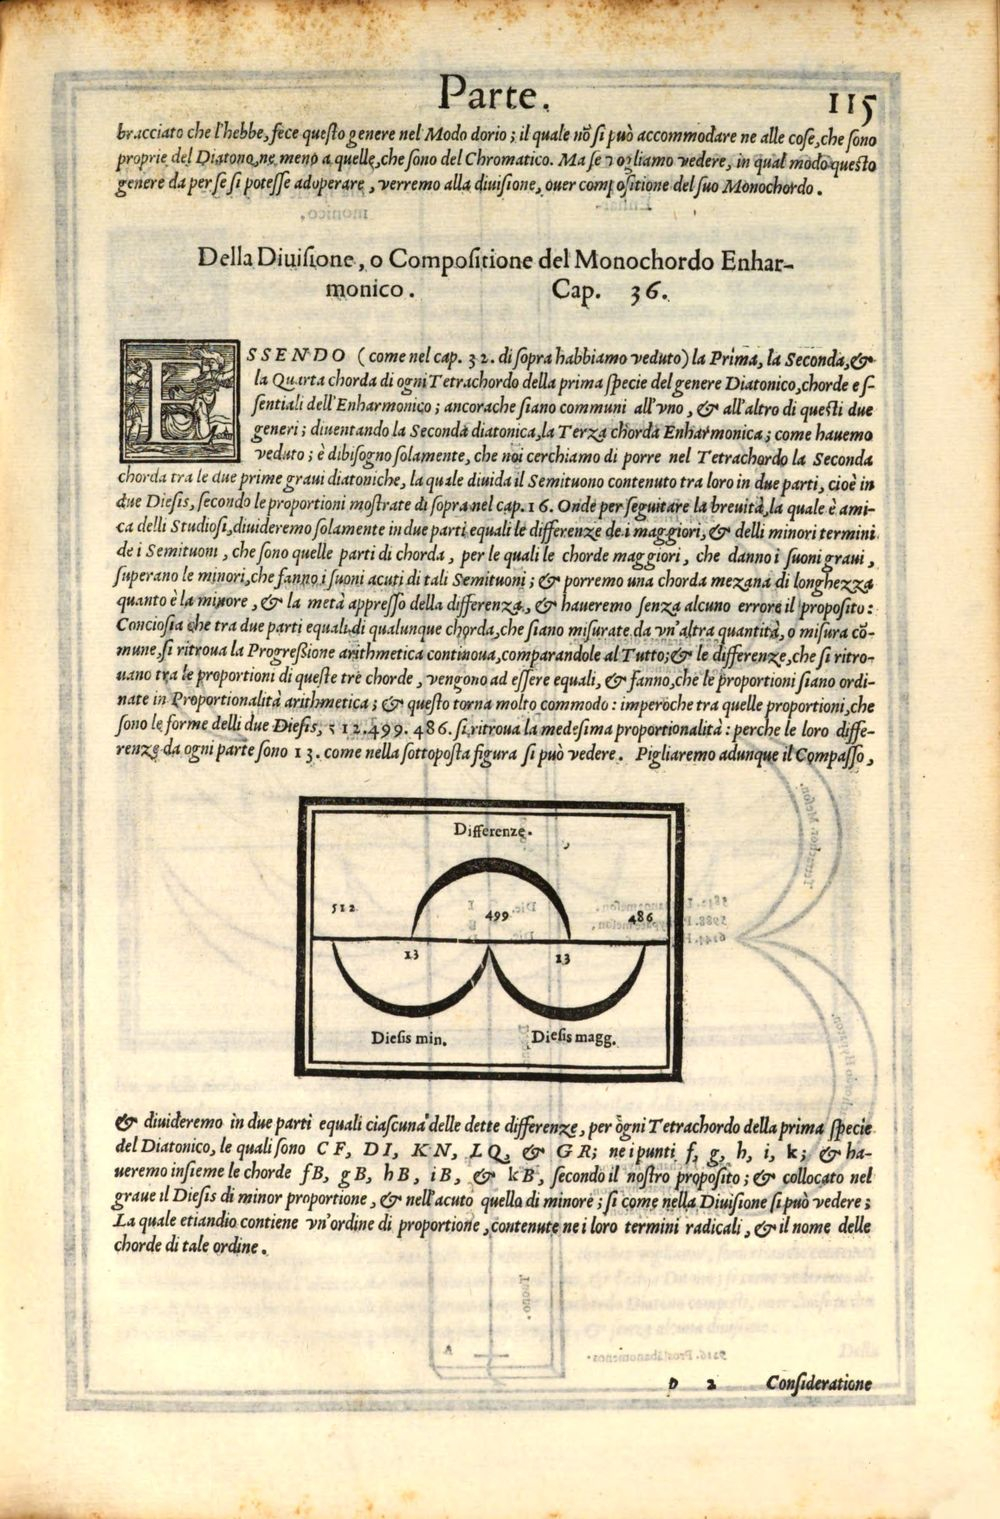 Parte. 115
bracciato che l'hebbe, fece questo genere nel Modo dorio; il quale nõ si può accommodare ne alle cose, che sono
proprie del Diatono, ne meno a quelle, che sono del Chromatico. Ma se vogliamo vedere, in qual modo questo
genere da per se si potesse adoperare, verremo alla diuisione, ouer compositione del suo Monochordo.
Della Diuisione, o Compositione del Monochordo Enhar-
monico. Cap. 36.
ESSENDO (come nel cap. 32. di sopra habbiamo veduto) la Prima, la Seconda, &
la Quarta chorda di ogni Tetrachordo della prima specie del genere Diatonico, chorde es-
sentiali dell'Enharmonico; ancorache siano communi all'vno, & all'altro di questi due
generi; diuentando la Seconda diatonica, la Terza chorda Enharmonica; come hauemo
veduto; è dibisogno solamente, che noi cerchiamo di porre nel Tetrachordo la Seconda
chorda tra le due prime graui diatoniche, la quale diuida il Semituono contenuto tra loro in due parti, cioè in
due Diesis, secondo le proportioni mostrate di sopra nel cap. 16. Onde per seguitare la breuità, la quale è ami-
ca delli Studiosi, diuideremo solamente in due parti equali le differenze de i maggiori, & delli minori termini
de i Semituoni, che sono quelle parti di chorda, per le quali le chorde maggiori, che danno i suoni graui,
superano le minori, che fanno i suoni acuti di tali Semituoni; & porremo una chorda mezana di longhezza
quanto è la minore, & la metà appresso della differenza, & haueremo senza alcuno errore il proposito:
Conciosia che tra due parti equali di qualunque chorda, che siano misurate da vn'altra quantità, o misura cõ-
mune, si ritroua la Progreßione arithmetica continoua, comparandole al Tutto; & le differenze, che si ritro-
uano tra le proportioni di queste tre chorde, vengono ad essere equali, & fanno, che le proportioni siano ordi-
nate in Proportionalità arithmetica; & questo torna molto commodo: imperoche tra quelle proportioni, che
sono le forme delli due Diesis, 512. 499. 486. si ritroua la medesima proportionalità: perche le loro diffe-
renze da ogni parte sono 13. come nella sottoposta figura si può vedere. Pigliaremo adunque il Compasso,
Differenze.
512 499 486
13 13
Diesis min. Diesis magg.
& diuideremo in due parti equali ciascuna delle dette differenze, per ogni Tetrachordo della prima specie
del Diatonico, le quali sono CF, DI, KN, LQ, & GR; ne i punti f, g, h, i, k; & ha-
ueremo insieme le chorde fB, gB, hB, iB, & kB, secondo il nostro proposito; & collocato nel
graue il Diesis di minor proportione, & nell'acuto quello di minore; si come nella Diuisione si può vedere;
La quale etiandio contiene vn'ordine di proportione, contenute ne i loro termini radicali, & il nome delle
chorde di tale ordine.
D 2 Consideratione